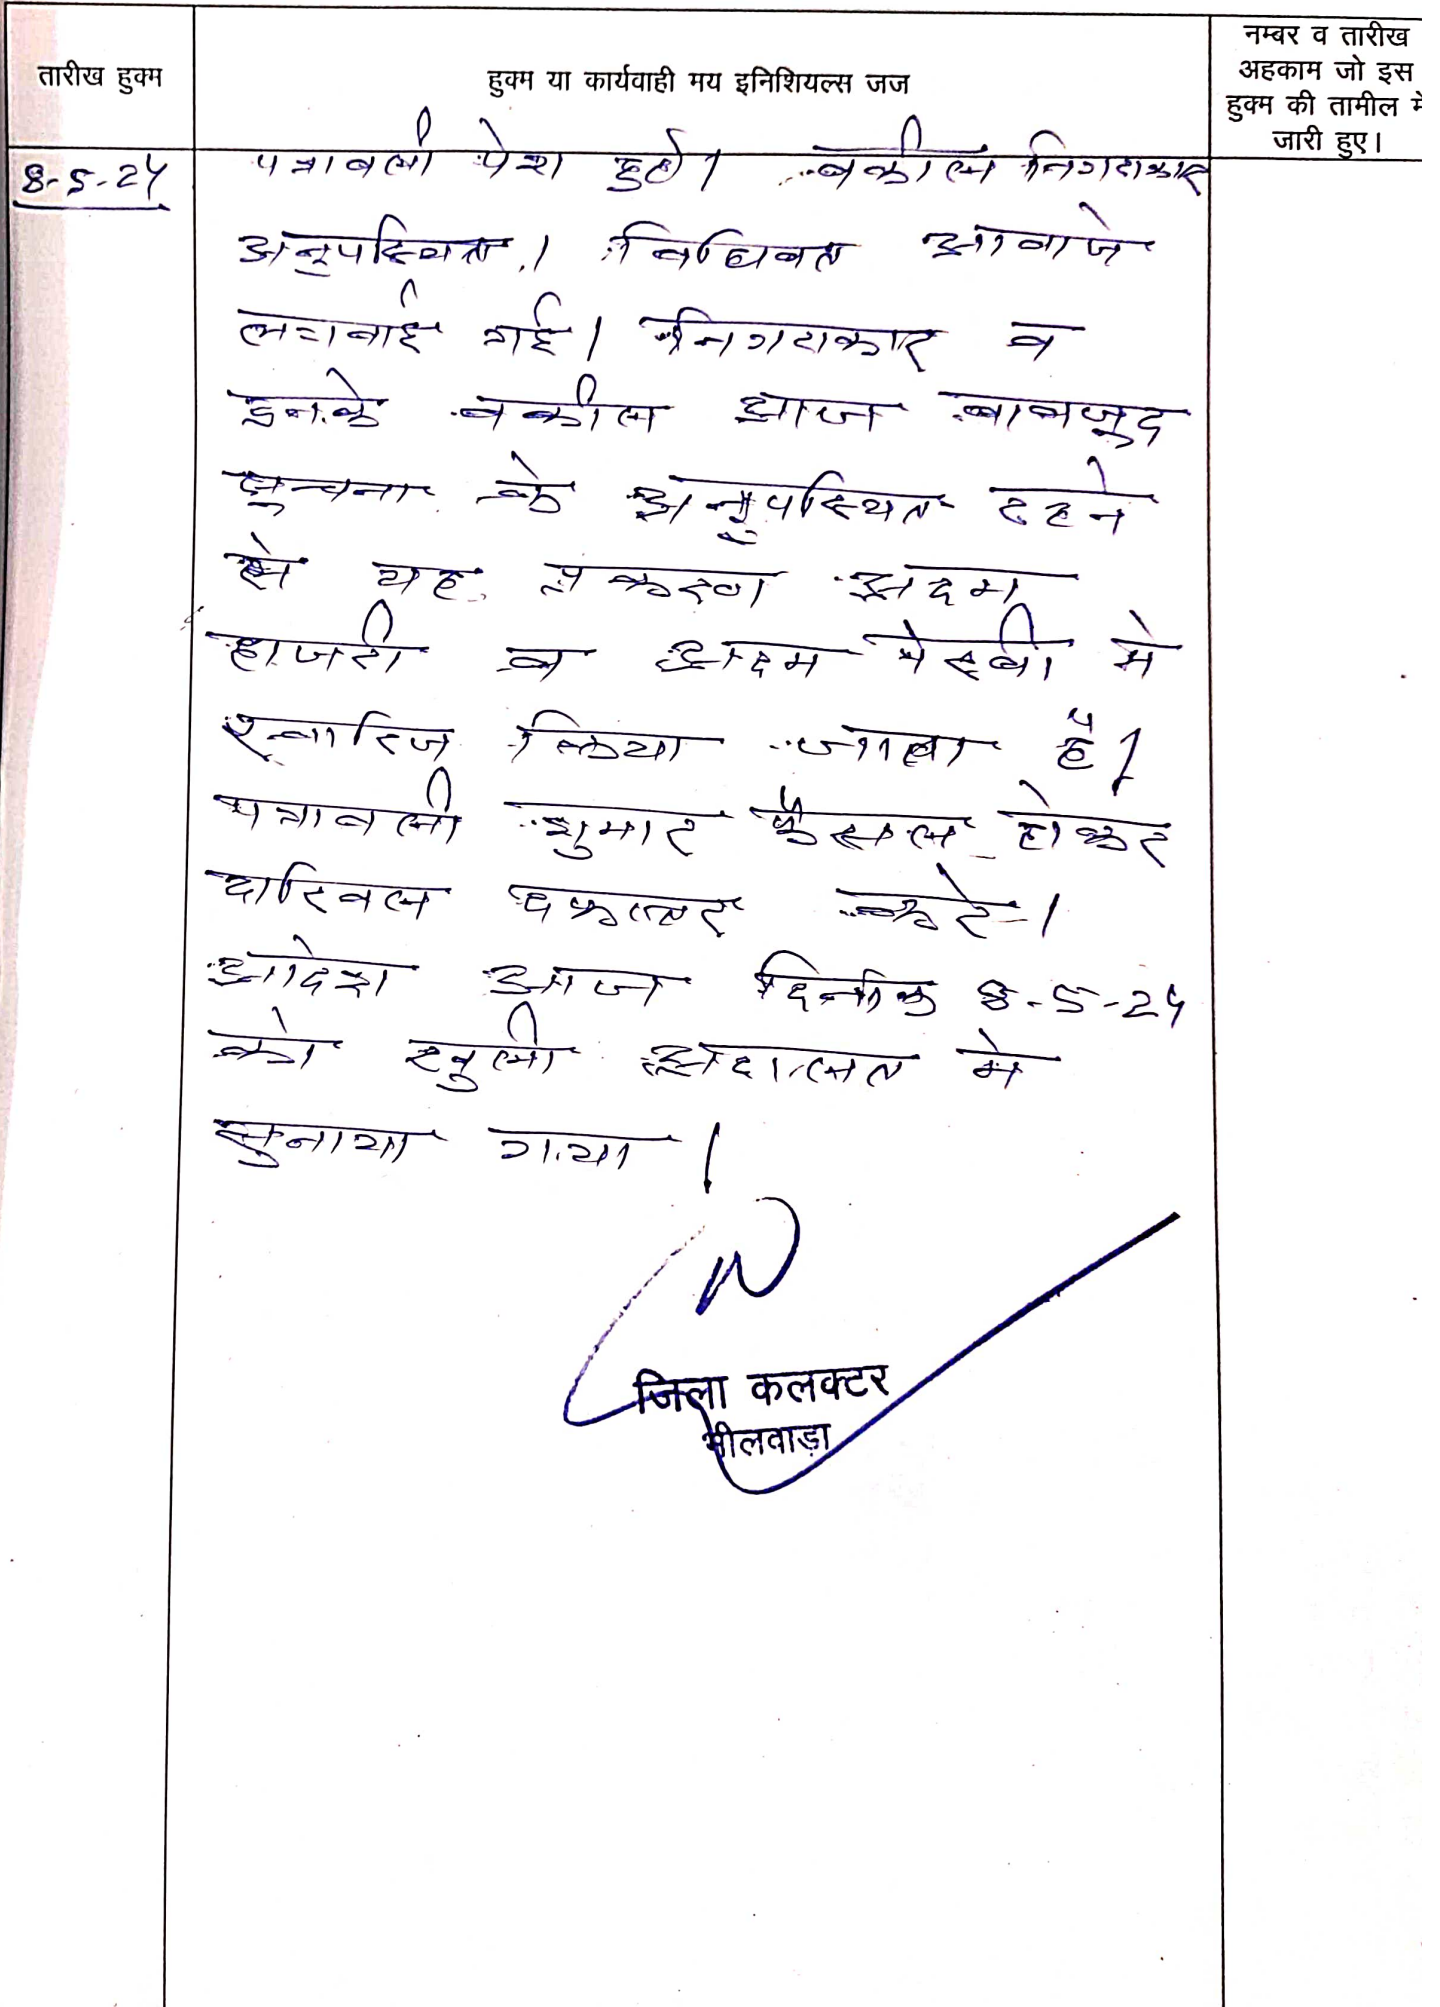 तारीख हुक्म
हुक्म या कार्यवाही मय इनिशियल्स जज
नम्बर व तारीख
अहकाम जो इस
हुक्म की तामील में
जारी हुए।
8-5-24
पत्रावली पेश हुई। वकील निगराकार
अनुपस्थित। विधिवत आवाजे
लगवाई गई। निगराकार व
इनके वकील आज बावजुद
सुचना के अनुपस्थित रहने
से यह प्रकरण अदम
हाजरी व अदम पेरवी मे
खारिज किया जाता है।
पत्रावली शुमार फैसल होकर
दाखिल दफ्तर करे।
आदेश आज दिनांक 8-5-24
को खुली अदालत मे
सुनाया गया।
जिला कलक्टर
भीलवाड़ा